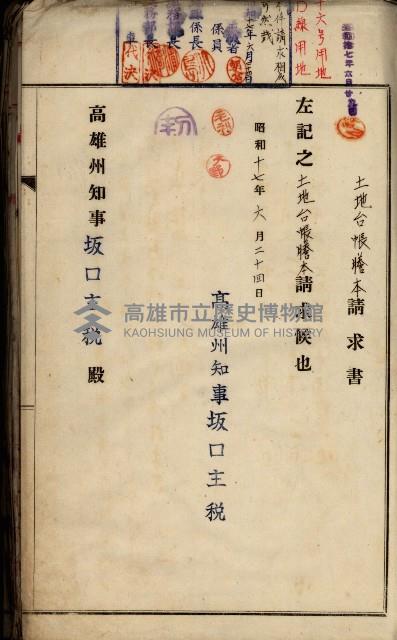 土地台帳謄本請求書
左記之土地台帳謄本請求候也
昭和十七年六月二十四日
高雄州知事坂口主税
高雄州知事坂口主税殿
十六号用地
線用地
係員
係長
代決
高雄市立歷史博物館
KAOHSIUNG MUSEUM OF HISTORY